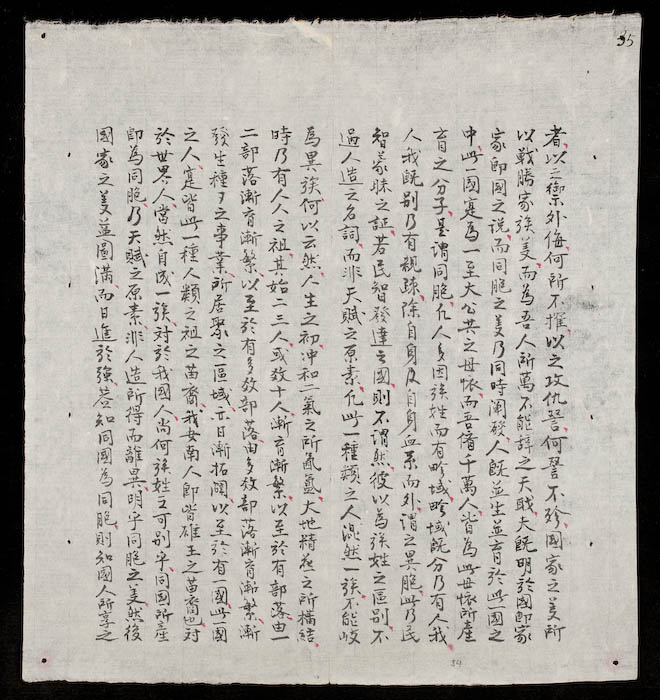 35
者以之禦外侮何所不摧以之攻仇讐何讐不殄國家之義所
以戰勝家族義而為吾人所萬不能辞之天職夫既明於國即家
家即國之説而同胞之義乃同時阐發人既並生並育於此一國之
中此一國寔為一至大公共之母懷而吾儕千萬人皆為此母懷所產
育之分子是謂同胞凡人多因族姓而有畛域畛域既分乃有人我
人我既别乃有親疎除自身及自身血系而外謂之異胞此乃民
智蒙昧之証若民智發達之國則不謂然彼以為族姓之區别不
過人造之名詞而非天賦之原素凡此一種類之人渾然一族不能岐
為異族何以云然人生之初冲和二氣之所氤氳大地精英之所構結
時乃有人人之祖其始二三人或数十人漸育漸繁以至於有部落由一
二部落漸育漸繁以至於有多数部落由多数部落漸育漸繁漸
發生種々之事業所居聚之區域亦日漸拓闊以至於有一國此一國
之人寔皆此一種人類之祖之苗裔我安南人即皆雄王之苗裔也対
於世界人當然自成一族対於我國人尚何族姓之可别乎同國所產
即為同胞乃天賦之原素非人造所得而離異明乎同胞之義然後
國家之義益圓满而日進於强蓋知同國為同胞則知國人所享之
34